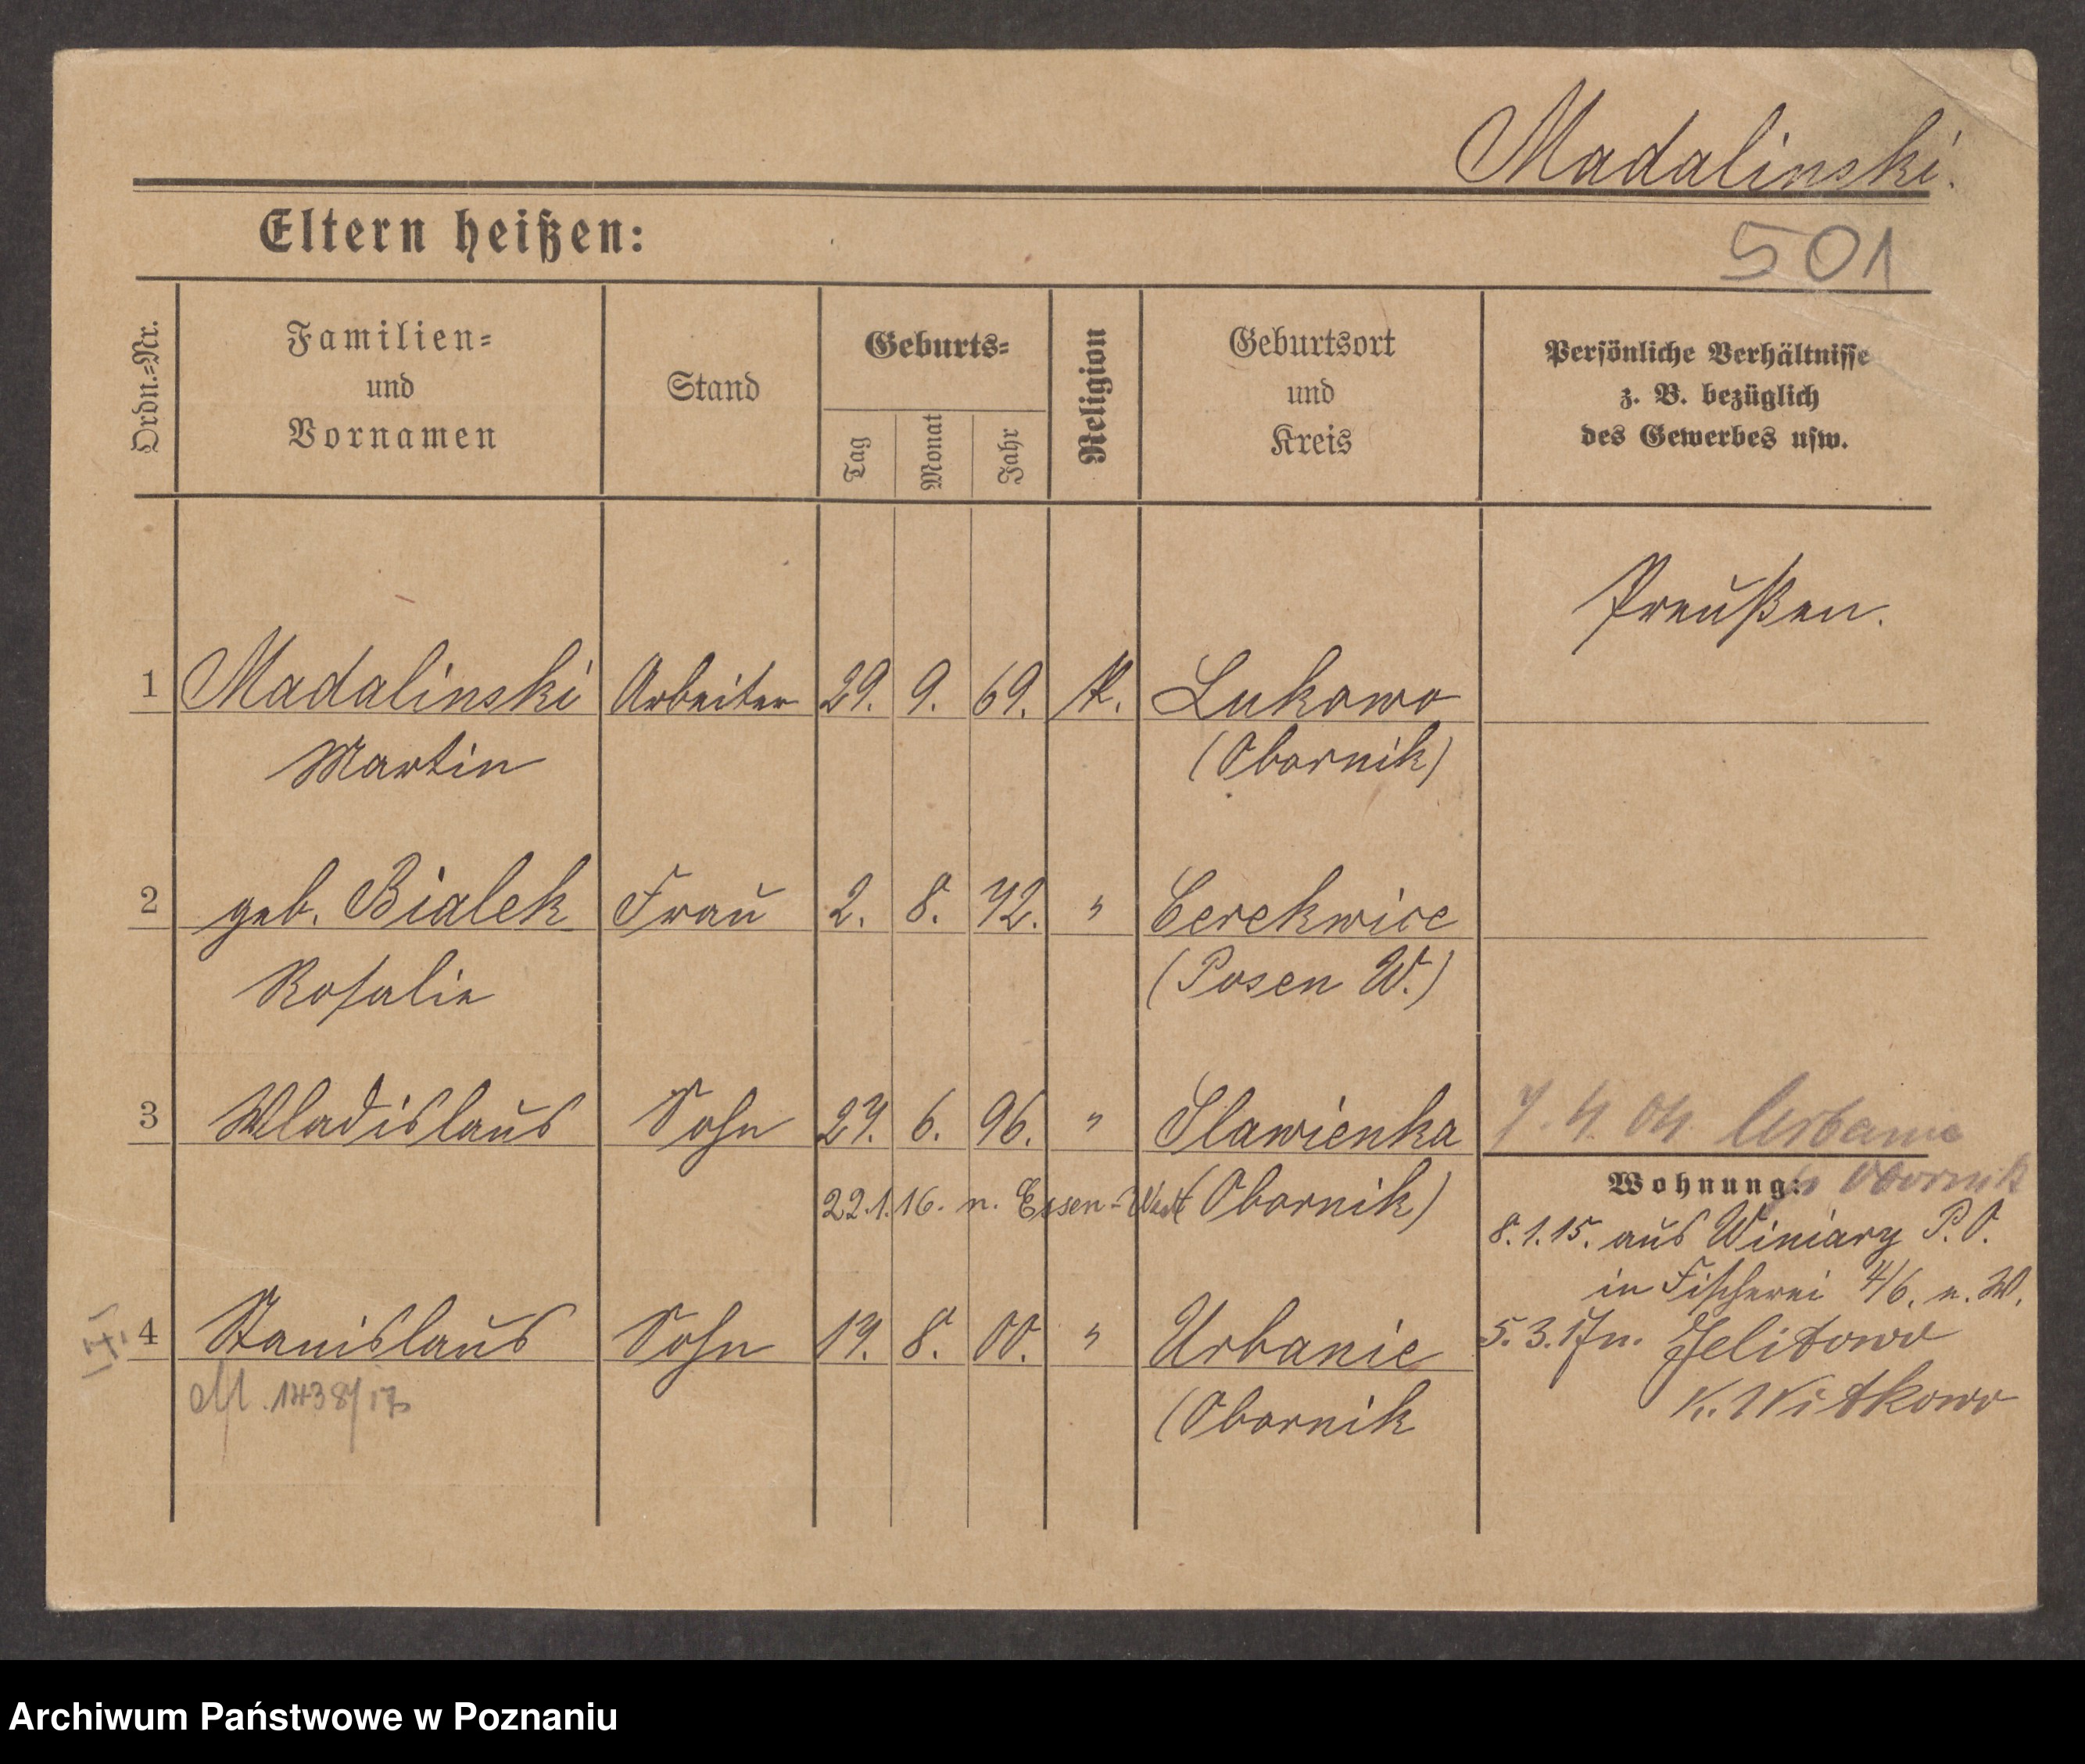 Madalinski.
Eltern heißen:
501
Ordn.=Nr.
Familien=
und
Vornamen
Stand
Geburts=
Tag
Monat
Jahr
Religion
Geburtsort
und
Kreis
Persönliche Verhältnisse
z. B. bezüglich
des Gewerbes usw.
Preußen.
1 Madalinski Arbeiter 29. 9. 69. K. Lukowo
Martin (Obornik)
2 geb. Bialek Frau 2. 8. 72. " Cerekwice
Rosalie (Posen W.)
3 Wladislaus Sohn 27. 6. 96. " Slawienka
Urbanie
Wohnung: Obornik
22.1.16. n. Essen-West (Obornik)
8.1.15. aus Winiary P.O.
in Fischerei 4/6. n. W.
4 Stanislaus Sohn 17. 8. 00. " Urbanie
5.3.17 n. Jelitowo
K. Witkowo
M. 1438/17
(Obornik
Archiwum Państwowe w Poznaniu